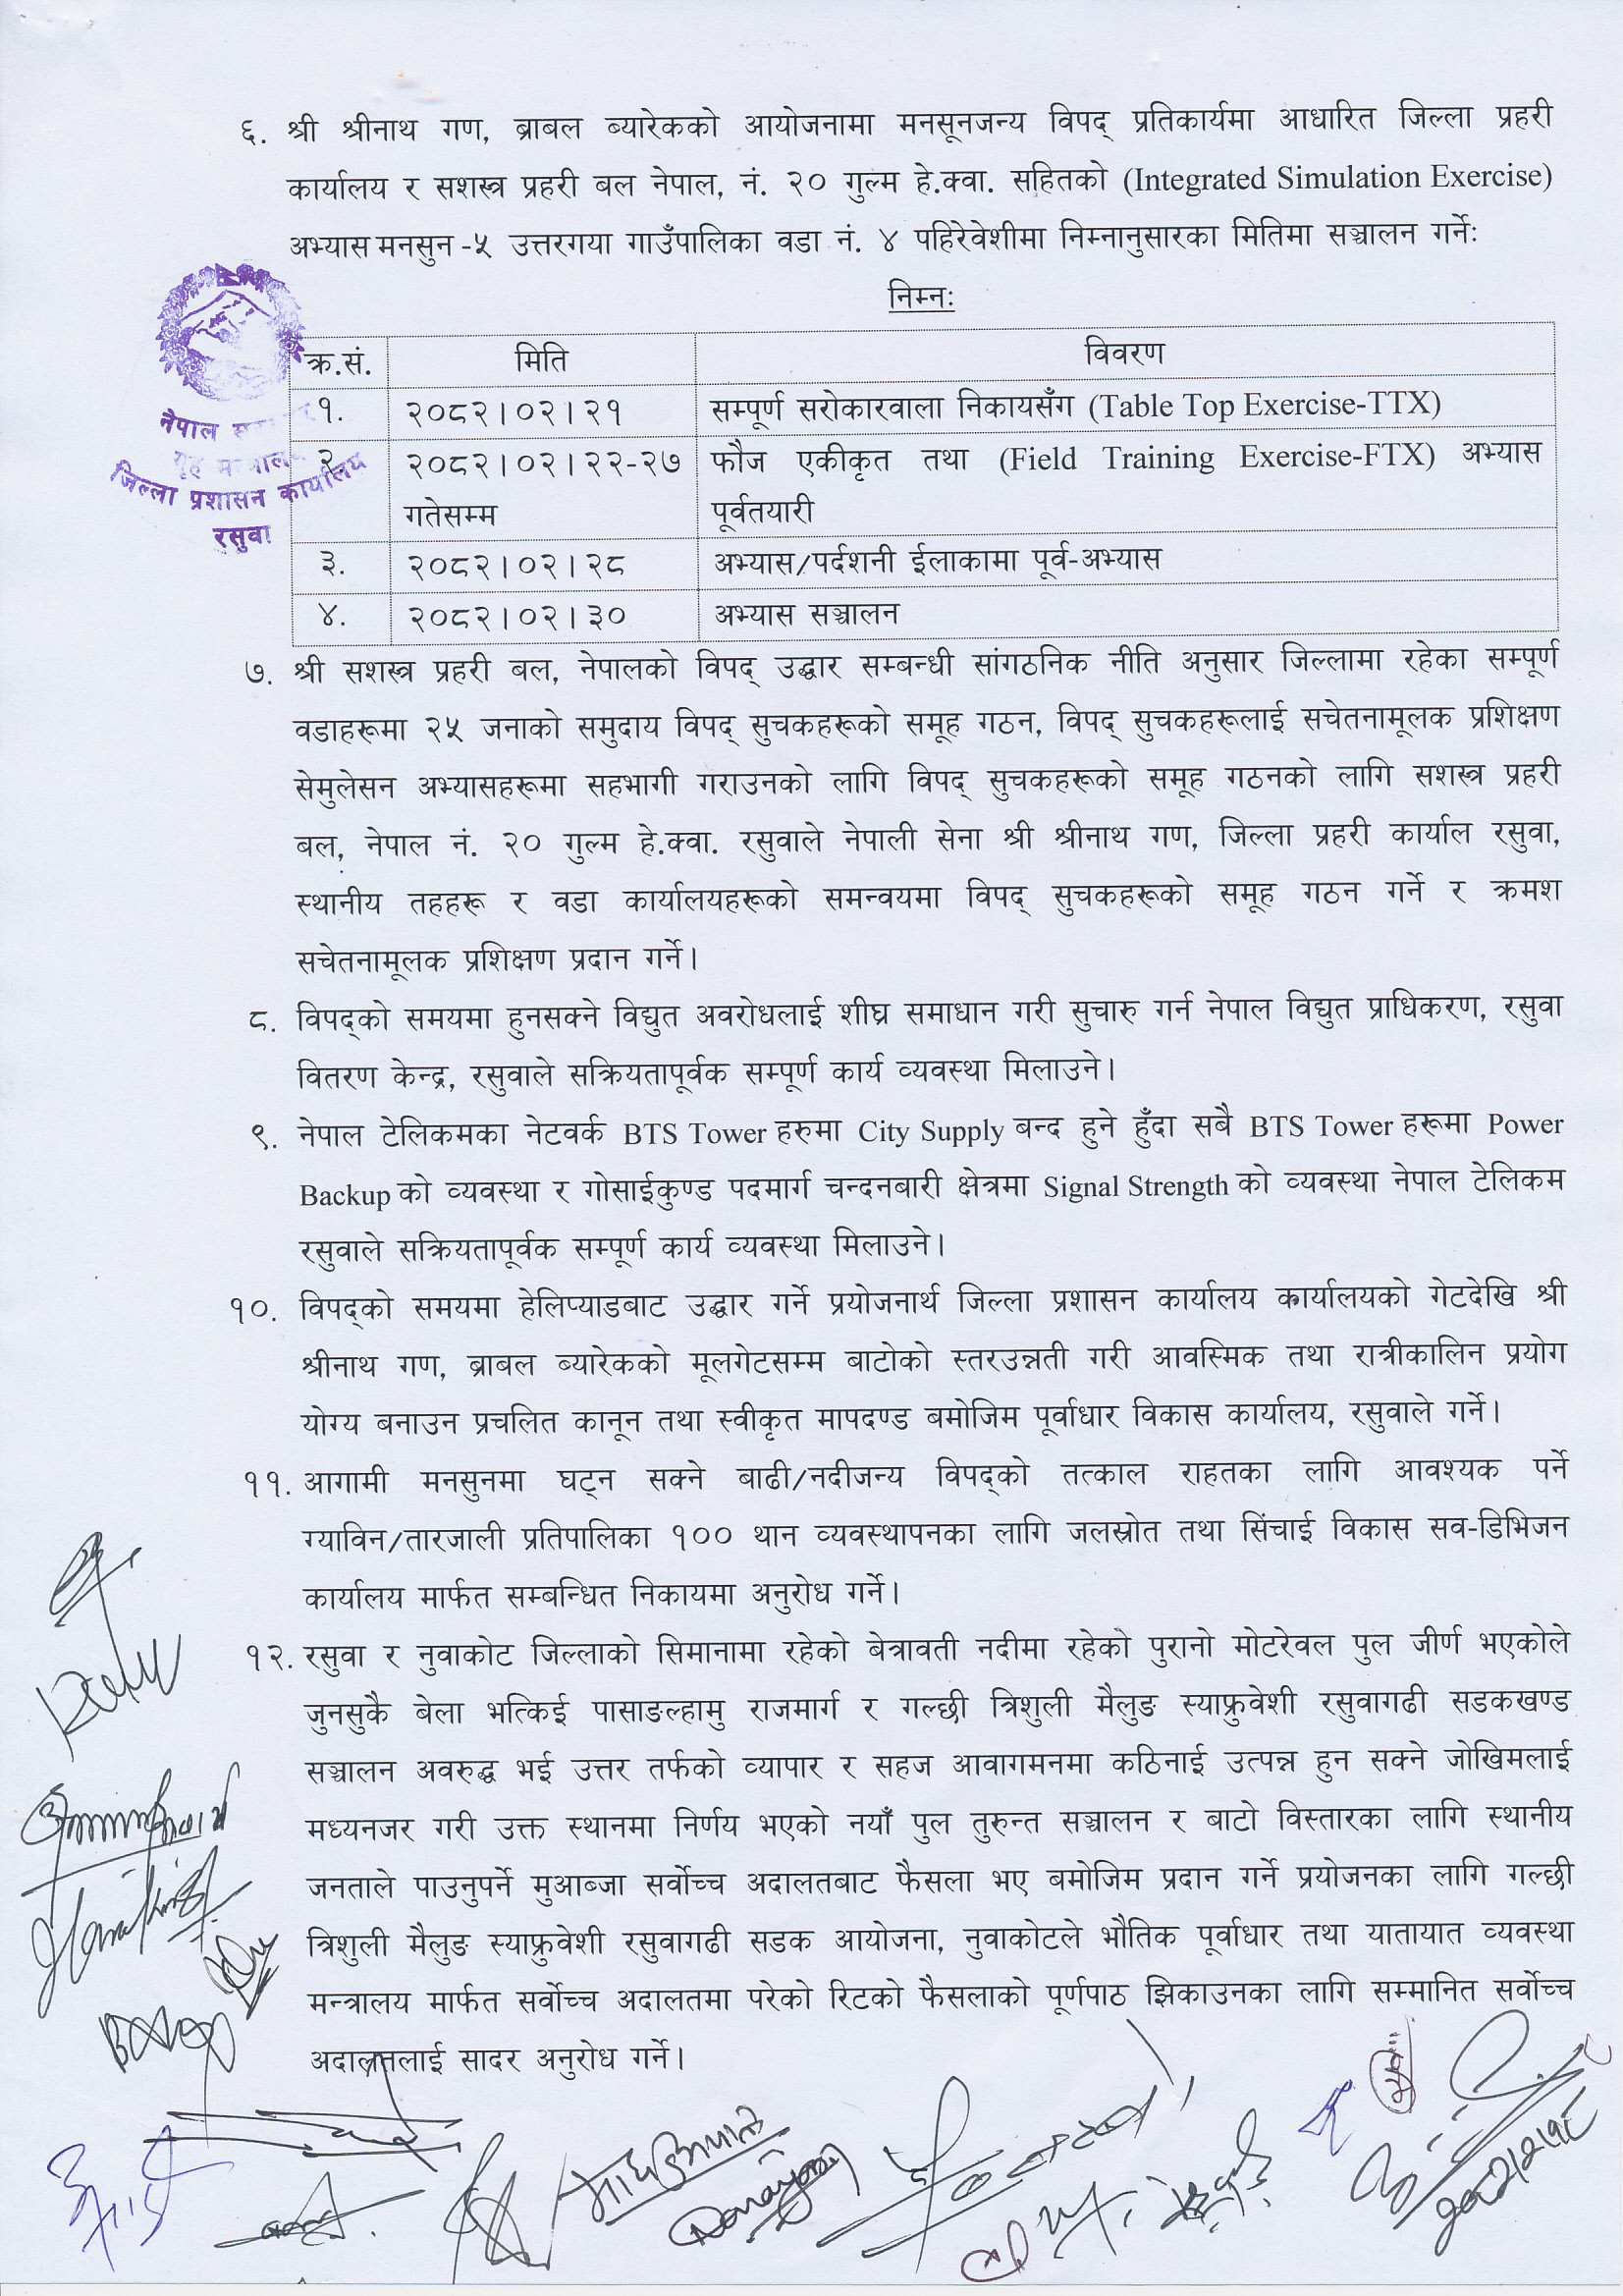 ६. श्री श्रीनाथ गण, ब्राबल ब्यारेकको आयोजनामा मनसूनजन्य विपद् प्रतिकार्यमा आधारित जिल्ला प्रहरी
कार्यालय र सशस्त्र प्रहरी बल नेपाल, नं. २० गुल्म हे.क्वा. सहितको (Integrated Simulation Exercise)
अभ्यास मनसुन -५ उत्तरगया गाउँपालिका वडा नं. ४ पहिरेवेशीमा निम्नानुसारका मितिमा सञ्चालन गर्नेः
निम्नः
क्र.सं. मिति विवरण
१. २०८२।०२।२१ सम्पूर्ण सरोकारवाला निकायसँग (Table Top Exercise-TTX)
२. २०८२।०२।२२-२७ फौज एकीकृत तथा (Field Training Exercise-FTX) अभ्यास
गतेसम्म पूर्वतयारी
३. २०८२।०२।२८ अभ्यास/पर्दशनी ईलाकामा पूर्व-अभ्यास
४. २०८२।०२।३० अभ्यास सञ्चालन
नेपाल
जिल्ला प्रशासन कार्यालय
रसुवा
७. श्री सशस्त्र प्रहरी बल, नेपालको विपद् उद्धार सम्बन्धी सांगठनिक नीति अनुसार जिल्लामा रहेका सम्पूर्ण
वडाहरूमा २५ जनाको समुदाय विपद् सुचकहरूको समूह गठन, विपद् सुचकहरूलाई सचेतनामूलक प्रशिक्षण
सेमुलेसन अभ्यासहरूमा सहभागी गराउनको लागि विपद् सुचकहरूको समूह गठनको लागि सशस्त्र प्रहरी
बल, नेपाल नं. २० गुल्म हे.क्वा. रसुवाले नेपाली सेना श्री श्रीनाथ गण, जिल्ला प्रहरी कार्याल रसुवा,
स्थानीय तहहरू र वडा कार्यालयहरूको समन्वयमा विपद् सुचकहरूको समूह गठन गर्ने र क्रमश
सचेतनामूलक प्रशिक्षण प्रदान गर्ने।
८. विपद्को समयमा हुनसक्ने विद्युत अवरोधलाई शीघ्र समाधान गरी सुचारु गर्न नेपाल विद्युत प्राधिकरण, रसुवा
वितरण केन्द्र, रसुवाले सक्रियतापूर्वक सम्पूर्ण कार्य व्यवस्था मिलाउने।
९. नेपाल टेलिकमका नेटवर्क BTS Tower हरुमा City Supply बन्द हुने हुँदा सबै BTS Tower हरूमा Power
Backup को व्यवस्था र गोसाईकुण्ड पदमार्ग चन्दनबारी क्षेत्रमा Signal Strength को व्यवस्था नेपाल टेलिकम
रसुवाले सक्रियतापूर्वक सम्पूर्ण कार्य व्यवस्था मिलाउने।
१०. विपद्को समयमा हेलिप्याडबाट उद्धार गर्ने प्रयोजनार्थ जिल्ला प्रशासन कार्यालय कार्यालयको गेटदेखि श्री
श्रीनाथ गण, ब्राबल ब्यारेकको मूलगेटसम्म बाटोको स्तरउन्नती गरी आवस्मिक तथा रात्रीकालिन प्रयोग
योग्य बनाउन प्रचलित कानून तथा स्वीकृत मापदण्ड बमोजिम पूर्वाधार विकास कार्यालय, रसुवाले गर्ने।
११. आगामी मनसुनमा घट्न सक्ने बाढी/नदीजन्य विपद्को तत्काल राहतका लागि आवश्यक पर्ने
ग्याविन/तारजाली प्रतिपालिका १०० थान व्यवस्थापनका लागि जलस्रोत तथा सिंचाई विकास सव-डिभिजन
कार्यालय मार्फत सम्बन्धित निकायमा अनुरोध गर्ने।
१२. रसुवा र नुवाकोट जिल्लाको सिमानामा रहेको बेत्रावती नदीमा रहेको पुरानो मोटरेवल पुल जीर्ण भएकोले
जुनसुकै बेला भत्किई पासाङल्हामु राजमार्ग र गल्छी त्रिशुली मैलुङ स्याफ्रुवेशी रसुवागढी सडकखण्ड
सञ्चालन अवरुद्ध भई उत्तर तर्फको व्यापार र सहज आवागमनमा कठिनाई उत्पन्न हुन सक्ने जोखिमलाई
मध्यनजर गरी उक्त स्थानमा निर्णय भएको नयाँ पुल तुरुन्त सञ्चालन र बाटो विस्तारका लागि स्थानीय
जनताले पाउनुपर्ने मुआब्जा सर्वोच्च अदालतबाट फैसला भए बमोजिम प्रदान गर्ने प्रयोजनका लागि गल्छी
त्रिशुली मैलुङ स्याफ्रुवेशी रसुवागढी सडक आयोजना, नुवाकोटले भौतिक पूर्वाधार तथा यातायात व्यवस्था
मन्त्रालय मार्फत सर्वोच्च अदालतमा परेको रिटको फैसलाको पूर्णपाठ झिकाउनका लागि सम्मानित सर्वोच्च
अदालतलाई सादर अनुरोध गर्ने।